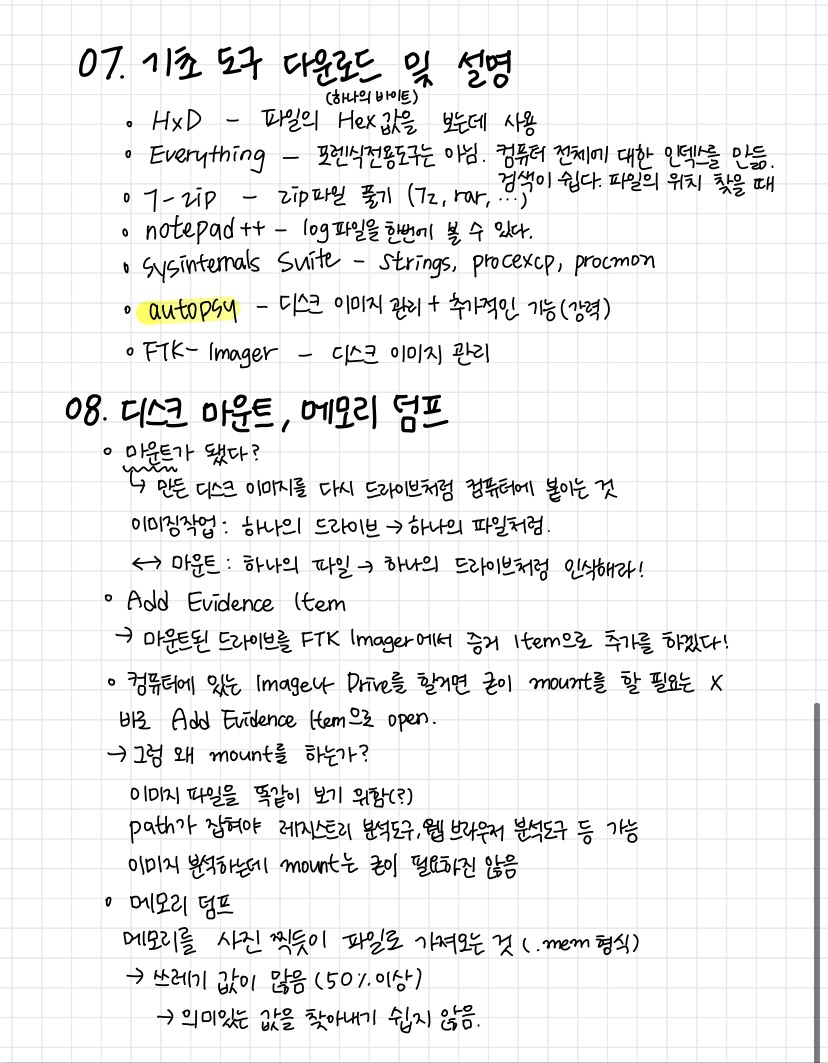 07. 기초 도구 다운로드 및 설명
(하나의 바이트)
◦ HxD - 파일의 Hex값을 보는데 사용
◦ Everything - 포렌식전용도구는 아님. 컴퓨터 전체에 대한 인덱스를 만듦.
검색이 쉽다. 파일의 위치 찾을 때
◦ 7-zip - zip파일 풀기 (7z, rar, …)
◦ notepad++ - log파일을 한번에 볼 수 있다.
◦ sysinternals Suite - strings, procexcp, procmon
◦ autopsy - 디스크 이미지 관리 + 추가적인 기능(강력)
◦ FTK-Imager - 디스크 이미지 관리
08. 디스크 마운트, 메모리 덤프
◦ 마운트가 됐다?
↳ 만든 디스크 이미지를 다시 드라이브처럼 컴퓨터에 붙이는 것
이미징작업: 하나의 드라이브 → 하나의 파일처럼.
↔ 마운트: 하나의 파일 → 하나의 드라이브처럼 인식해라!
◦ Add Evidence Item
→ 마운트된 드라이브를 FTK Imager에서 증거 Item으로 추가를 하겠다!
◦ 컴퓨터에 있는 Image나 Drive를 할거면 굳이 mount를 할 필요는 X
바로 Add Evidence Item으로 open.
→ 그럼 왜 mount를 하는가?
이미지 파일을 똑같이 보기 위함(?)
path가 잡혀야 레지스트리 분석도구, 웹 브라우저 분석도구 등 가능
이미지 분석하는데 mount는 굳이 필요하진 않음
◦ 메모리 덤프
메모리를 사진 찍듯이 파일로 가져오는 것 (.mem 형식)
→ 쓰레기 값이 많음 (50% 이상)
→ 의미있는 값을 찾아내기 쉽지 않음.